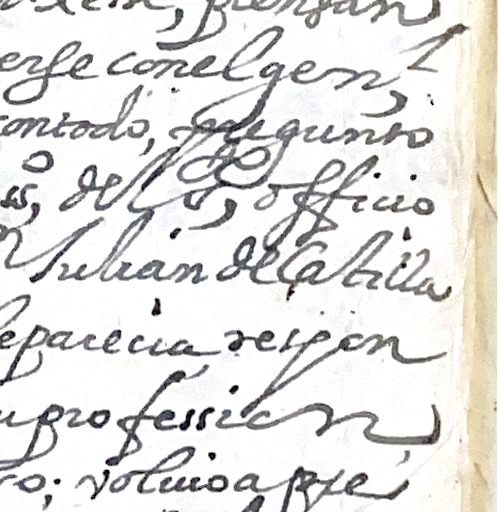 piensan
erse con el gen.l
con todo, pregunto
ss, del S.to officio
Julian de Castilla
le parecia respon
u profession
ro; voluio a pre